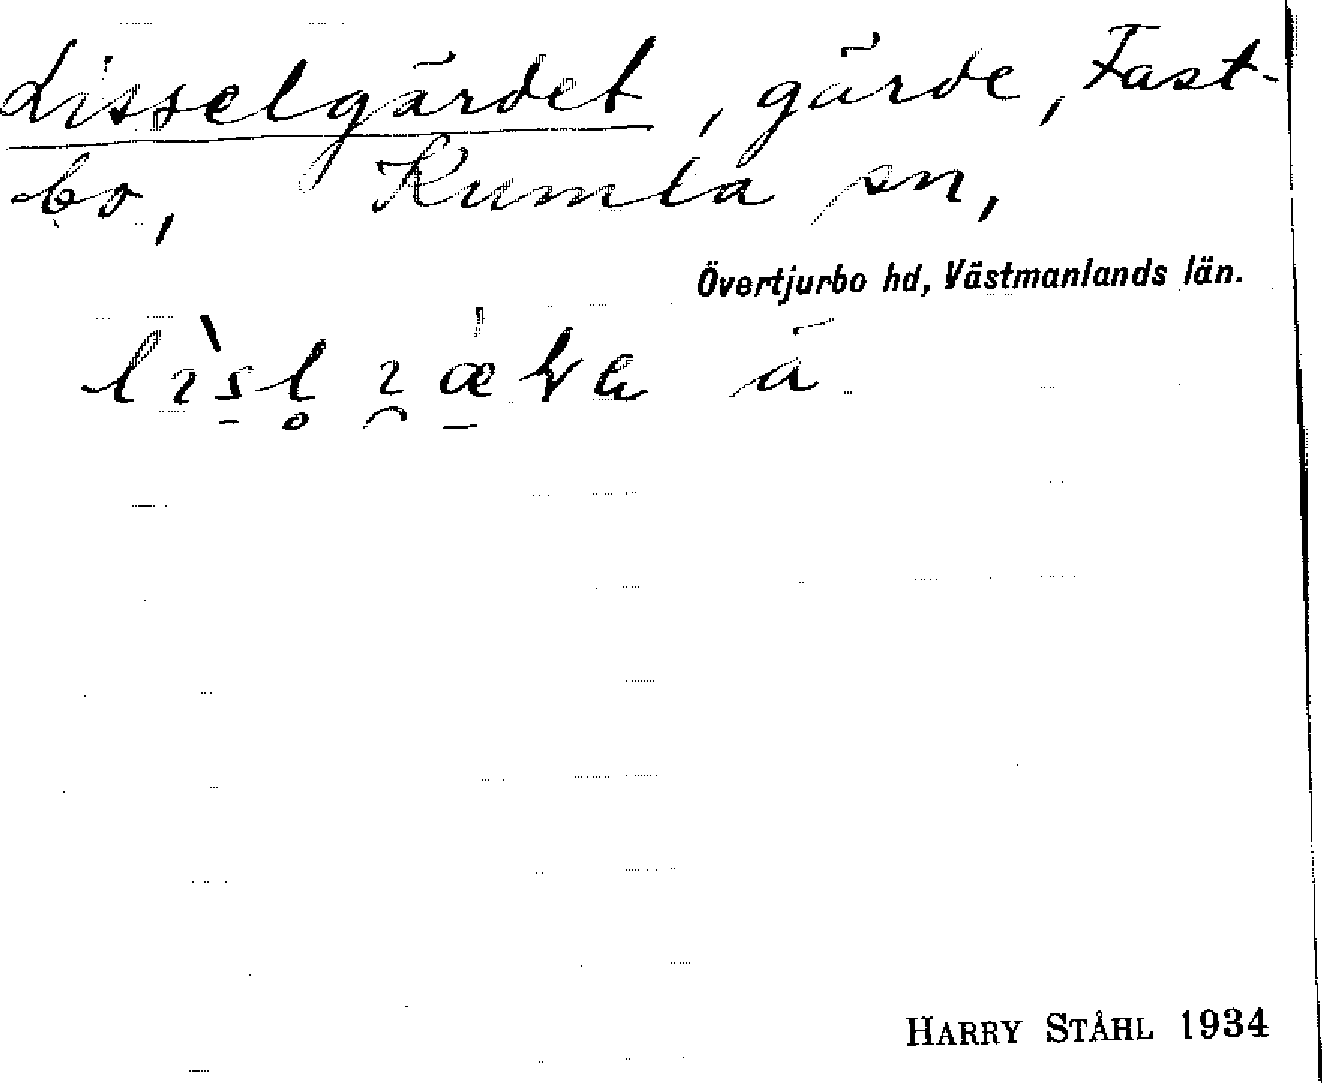 Lisselgärdet, gärde, Fast-
bo, Kumla sn,
Övertjurbo hd, Västmanlands län.
ä
HARRY STÅHL 1934